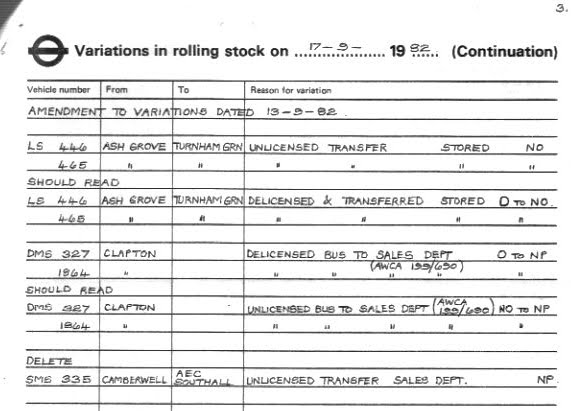 3.
Variations in rolling stock on 17-9- 1982 (Continuation)
Vehicle number From To Reason for variation
AMENDMENT TO VARIATIONS DATED 13-9-82.
LS 446 ASH GROVE TURNHAM GRN UNLICENSED TRANSFER STORED NO
465 " " " " " "
SHOULD READ
LS 446 ASH GROVE TURNHAM GRN DELICENSED & TRANSFERRED STORED O TO NO.
465 " " " " " "
DMS 327 CLAPTON DELICENSED BUS TO SALES DEPT O TO NP
(AWCA 199/690)
1864 " " " " " "
SHOULD READ
DMS 327 CLAPTON UNLICENSED BUS TO SALES DEPT (AWCA 199/690) NO TO NP
1864 " " " " " "
DELETE
SMS 335 CAMBERWELL AEC SOUTHALL UNLICENSED TRANSFER SALES DEPT. NP.